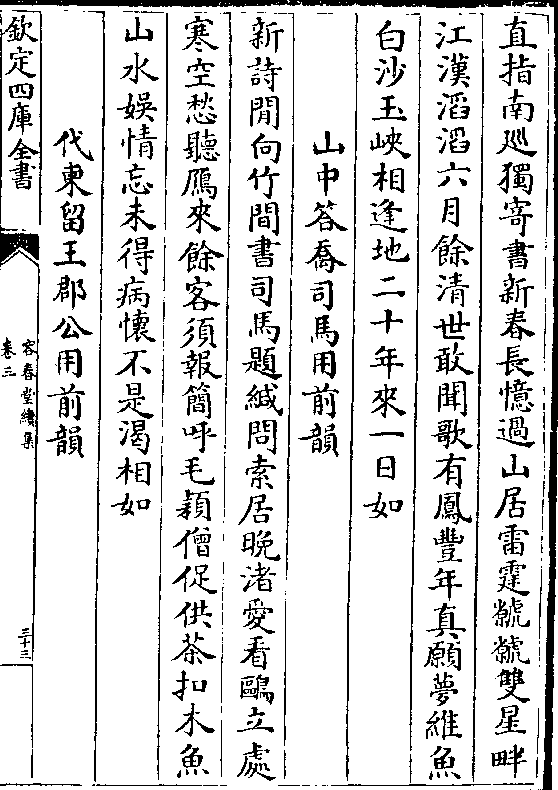 直指南廵獨寄書新春長憶過山居雷霆虩虩雙星畔
江漢滔滔六月餘清世敢聞歌有鳳豐年真願夢維魚
白沙玉峽相逢地二十年來一日如
山中答喬司馬用前韻
新詩閒向竹間書司馬題緘問索居晚渚愛看鷗立處
寒空愁聽鴈來餘客須報簡呼毛穎僧促供茶扣木魚
山水娛情忘未得病懷不是渴相如
代柬留王郡公用前韻
欽定四庫全書
容春堂續集
卷三
三十三